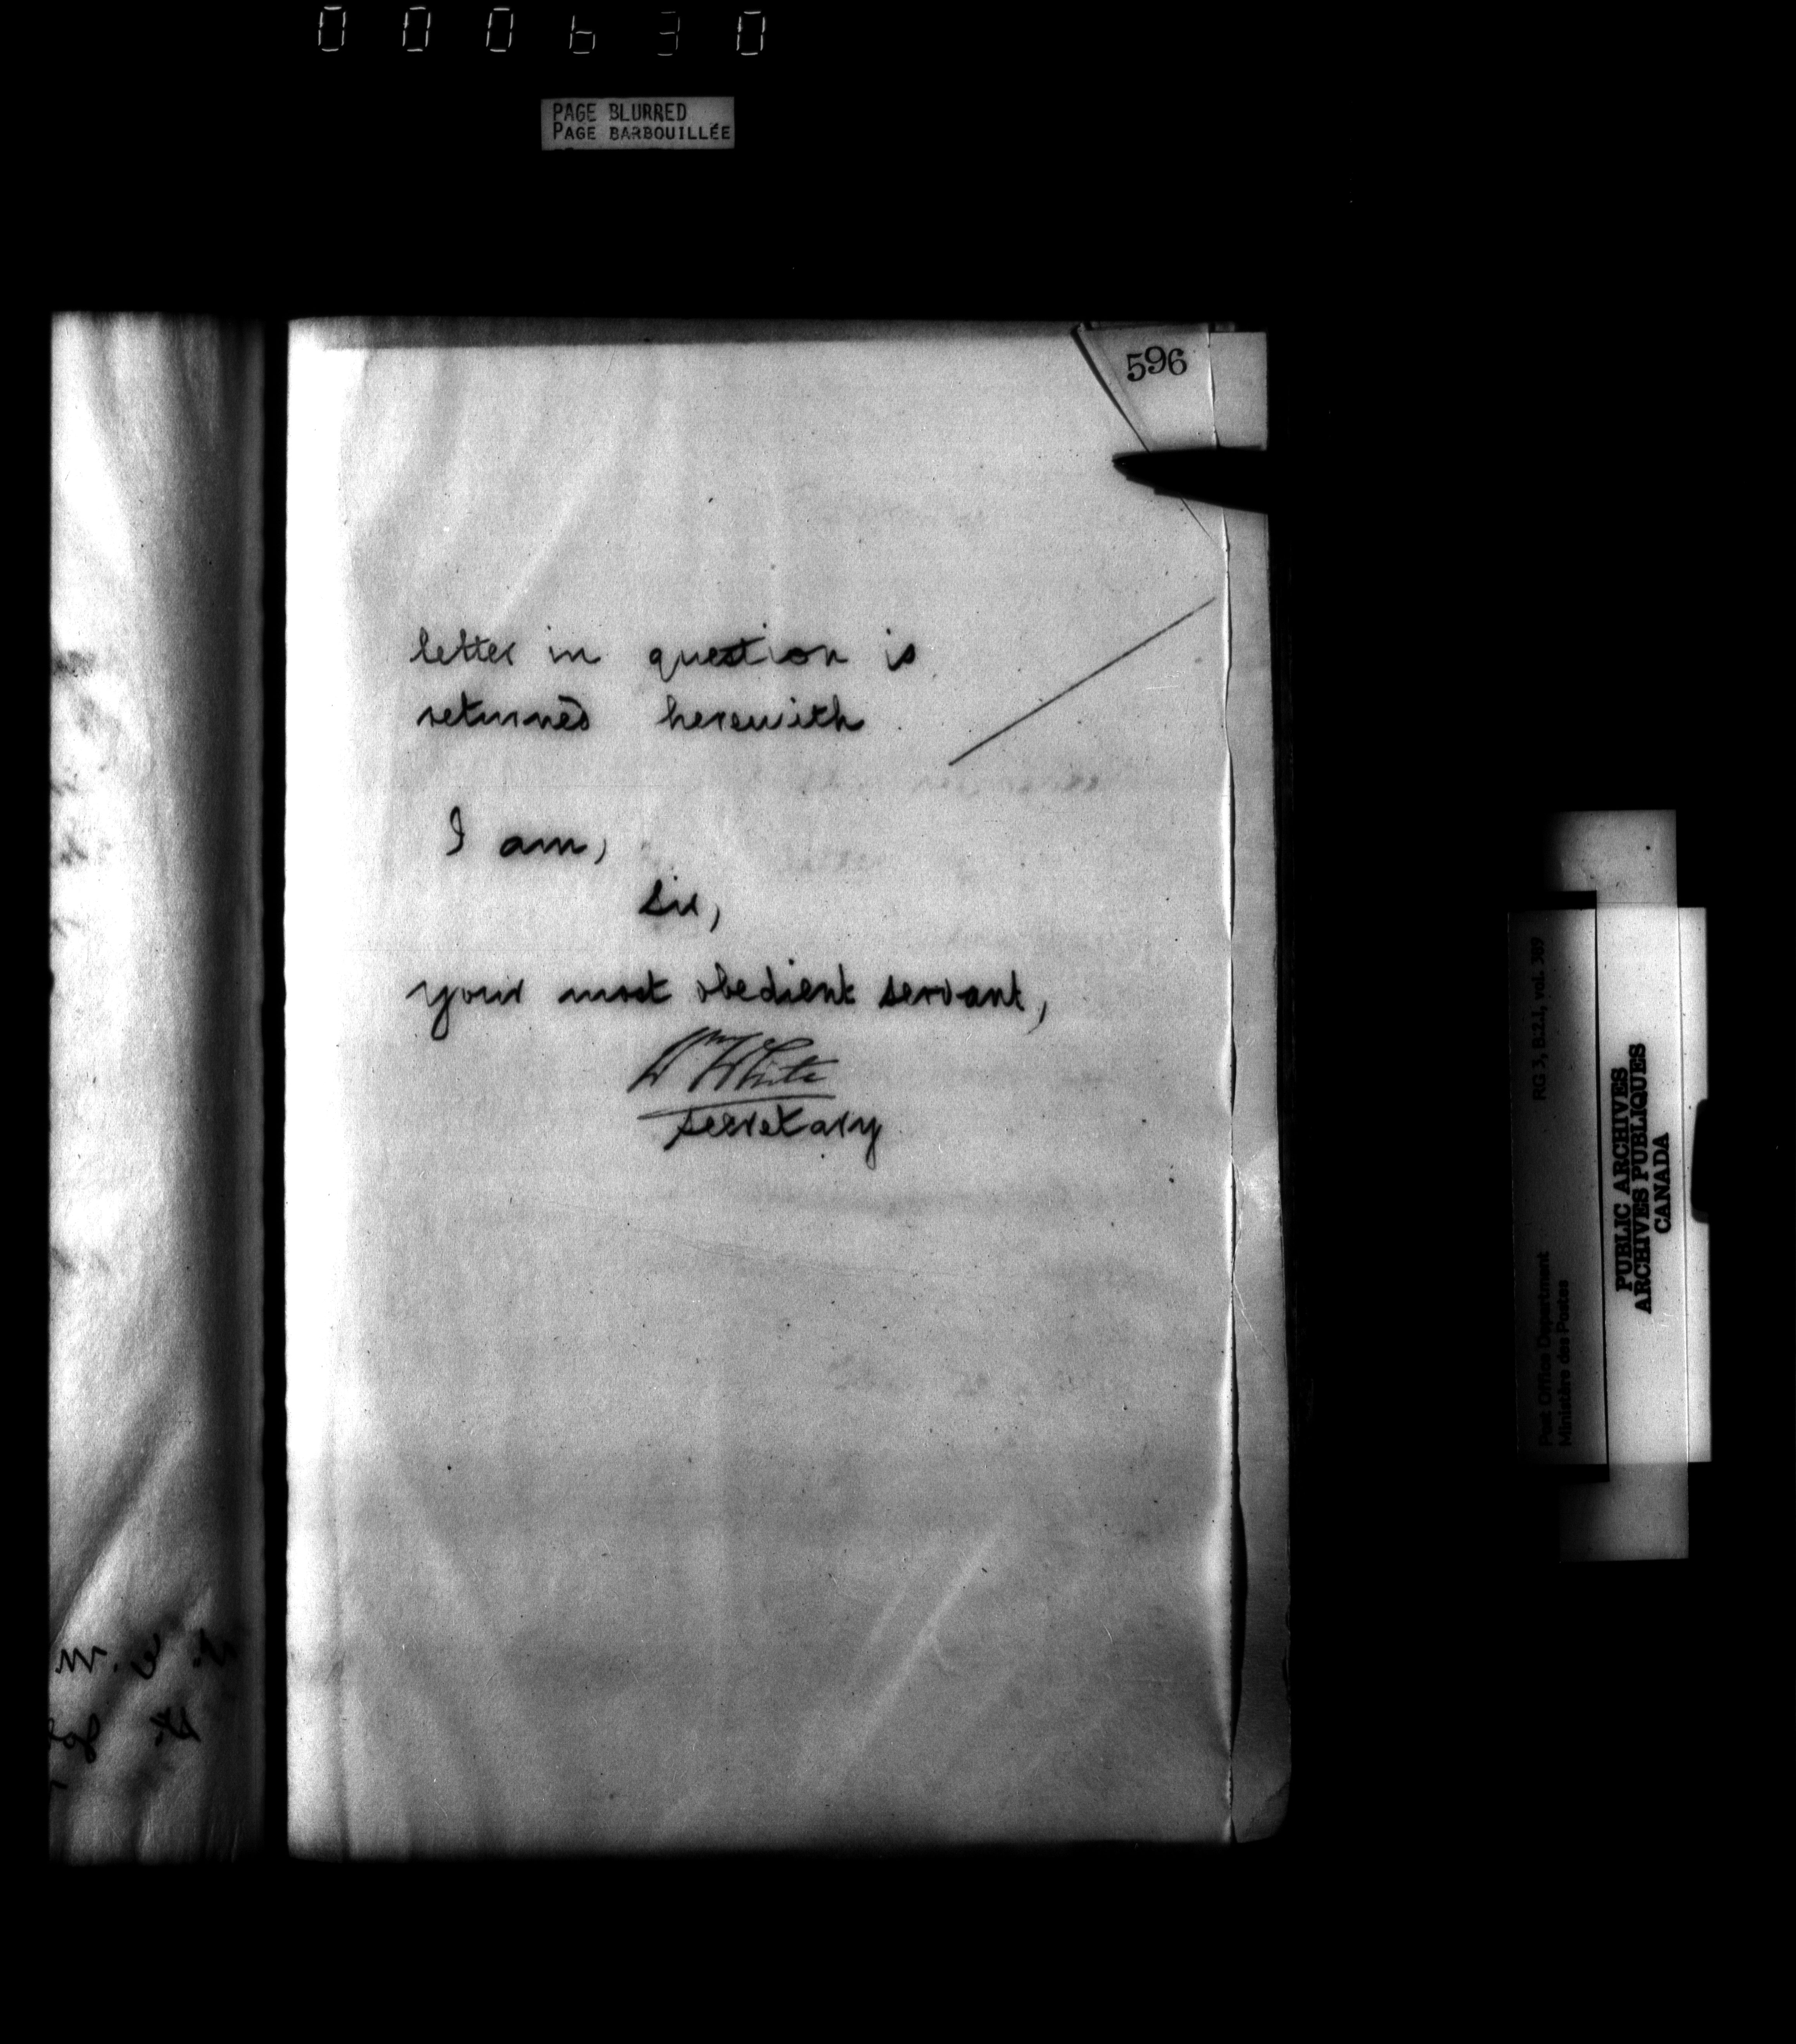 000630
PAGE BLURRED
PAGE BARBOUILLÉE
596
letter in question is
returned herewith
I am,
Sir,
your most obedient servant,
Wm White
secretary
RG 3, B.2.1, vol. 389
Post Office Department
Ministère des Postes
PUBLIC ARCHIVES
ARCHIVES PUBLIQUES
CANADA